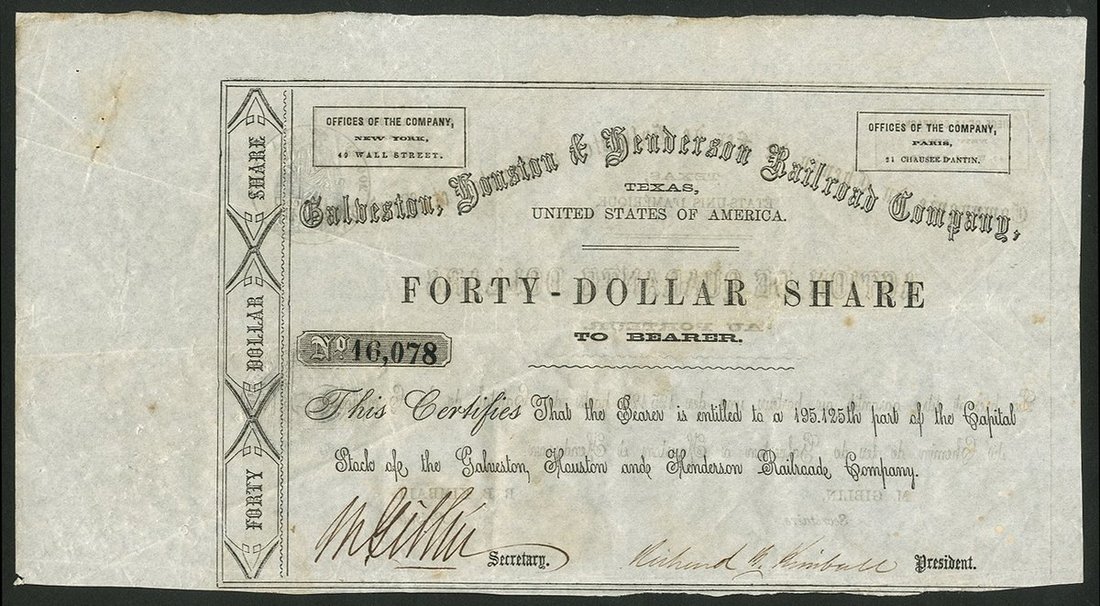 OFFICES OF THE COMPANY,
NEW YORK,
49 WALL STREET.
OFFICES OF THE COMPANY,
PARIS,
21 CHAUSEE D'ANTIN.
Galveston, Houston & Henderson Railroad Company,
TEXAS,
UNITED STATES OF AMERICA.
FORTY-DOLLAR SHARE
TO BEARER.
No 16,078
This Certifies That the Bearer is entitled to a 195.125th part of the Capital
Stock ofe the Galveston, Houston ande Henderson Railroade, Company.
Secretary.
Richard B. Kimball President.
FORTY DOLLAR SHARE